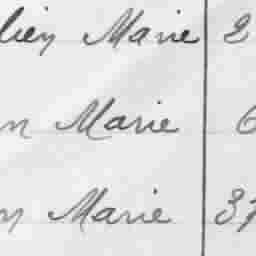 lien Marie 2
n Marie 6
n Marie 37